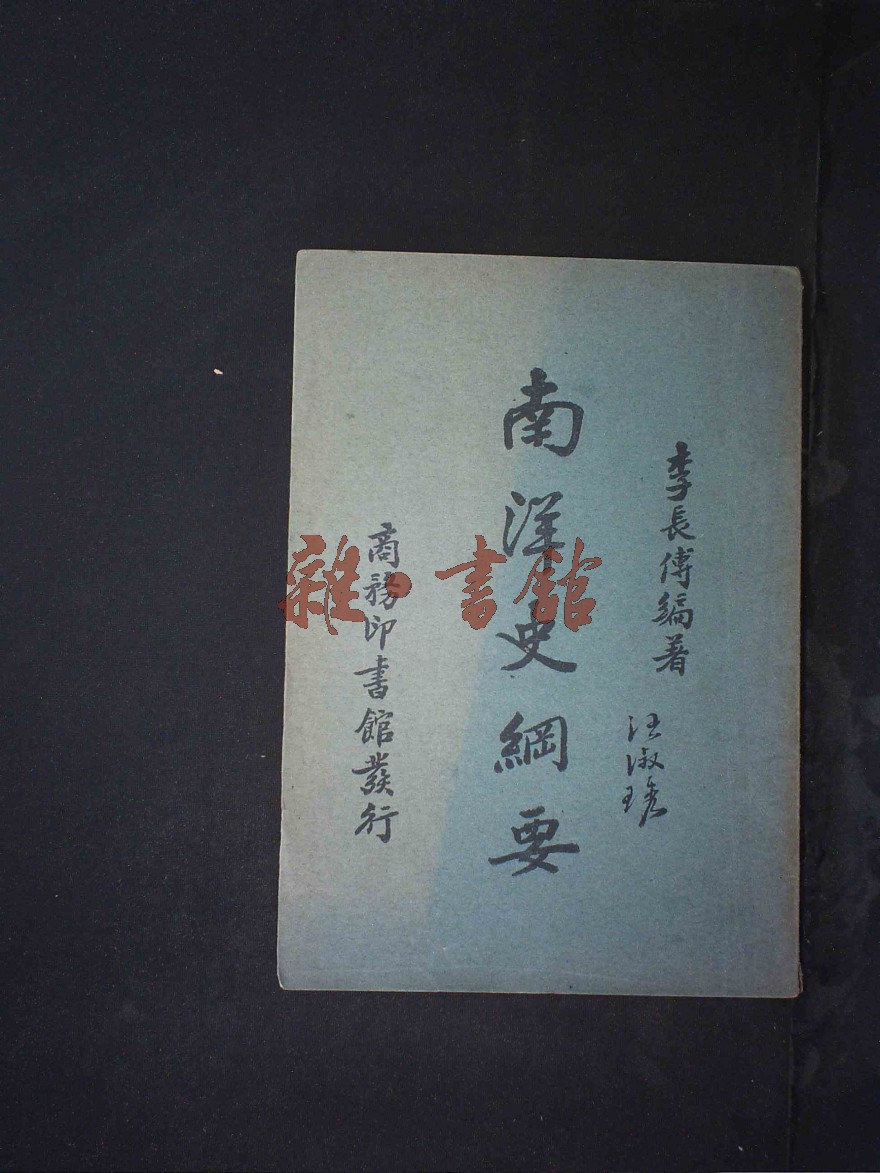 李長傅編著
汪淑
南洋史綱要
商務印書館發行
雜·書館